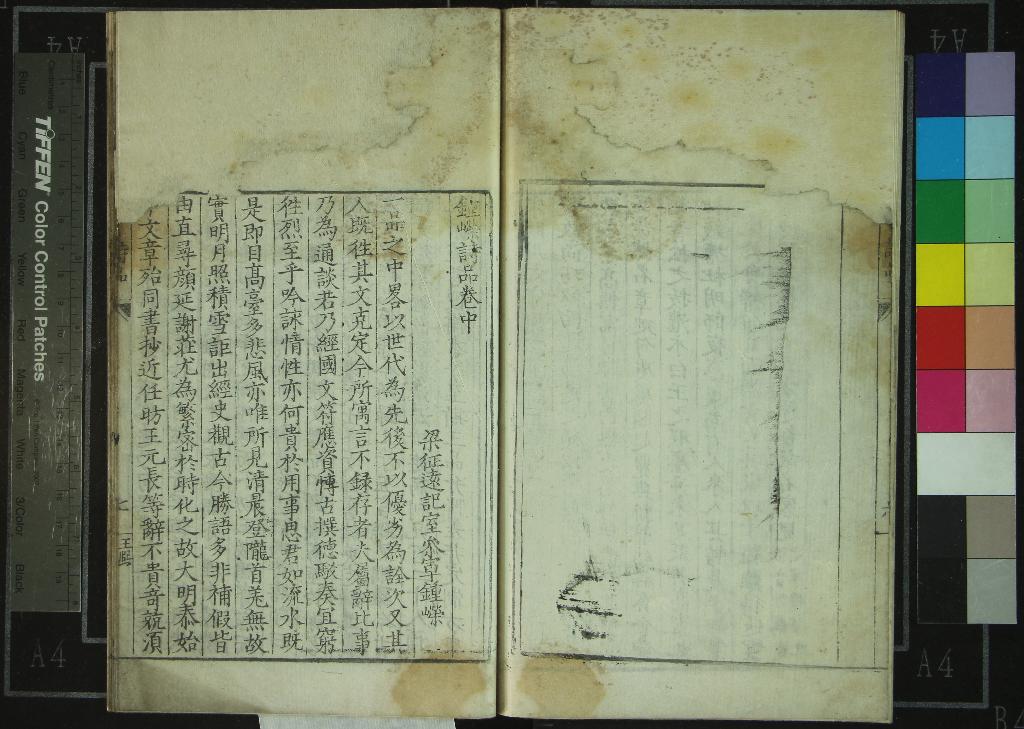 鍾嶸詩品卷中
梁征遠記室參軍鍾嶸
一品之中畧以世代為先後不以優劣為詮次又其
人既徃其文克定今所寓言不錄存者夫屬辭比事
乃為通談若乃經國文符應資博古撰德駮奏宜窮
徃烈至乎吟詠情性亦何貴於用事思君如流水既
是即目高臺多悲風亦唯所見清晨登隴首羌無故
實明月照積雪詎出經史觀古今勝語多非補假皆
由直尋顏延謝莊尤為繁密於時化之故大明泰始
中文章殆同書抄近任昉王元長等辭不貴竒競須
詩品
七
TIFFEN Color Control Patches
Centimetres
Blue
Cyan
Green
Yellow
Red
Magenta
White
3/Color
Black
A4
A4
A4
A4